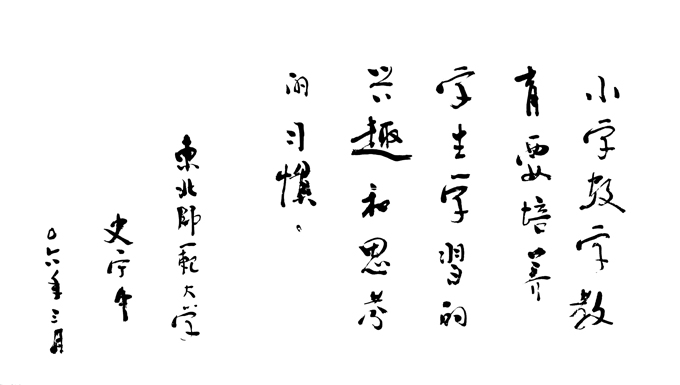 小学数学教
育要培养
学生学習的
兴趣和思考
的习慣。
東北師範大学
史宁中
〇六年三月